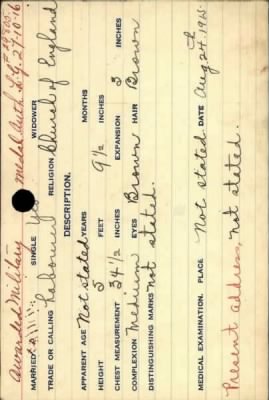 Awarded Military Medal Auth L.G. 27-10-16
MARRIED SINGLE Yes WIDOWER
TRADE OR CALLING Labourer RELIGION Church of England
DESCRIPTION.
APPARENT AGE Not stated YEARS MONTHS
HEIGHT 5 FEET 9½ INCHES
CHEST MEASUREMENT 34½ INCHES EXPANSION 3 INCHES
COMPLEXION Medium EYES Brown HAIR Brown
DISTINGUISHING MARKS not stated.
MEDICAL EXAMINATION. PLACE Not stated DATE Aug 24th 1915
Present address, not stated.